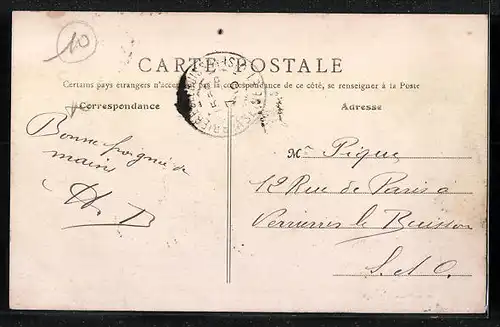 10
CARTE POSTALE
Certains pays étrangers n'acceptent pas la correspondance de ce côté, se renseigner à la Poste
Correspondance
Adresse
Bonne poignée de
mains
Mr Pique
12 Rue de Paris à
Verrieres le Buisson
S. et O.